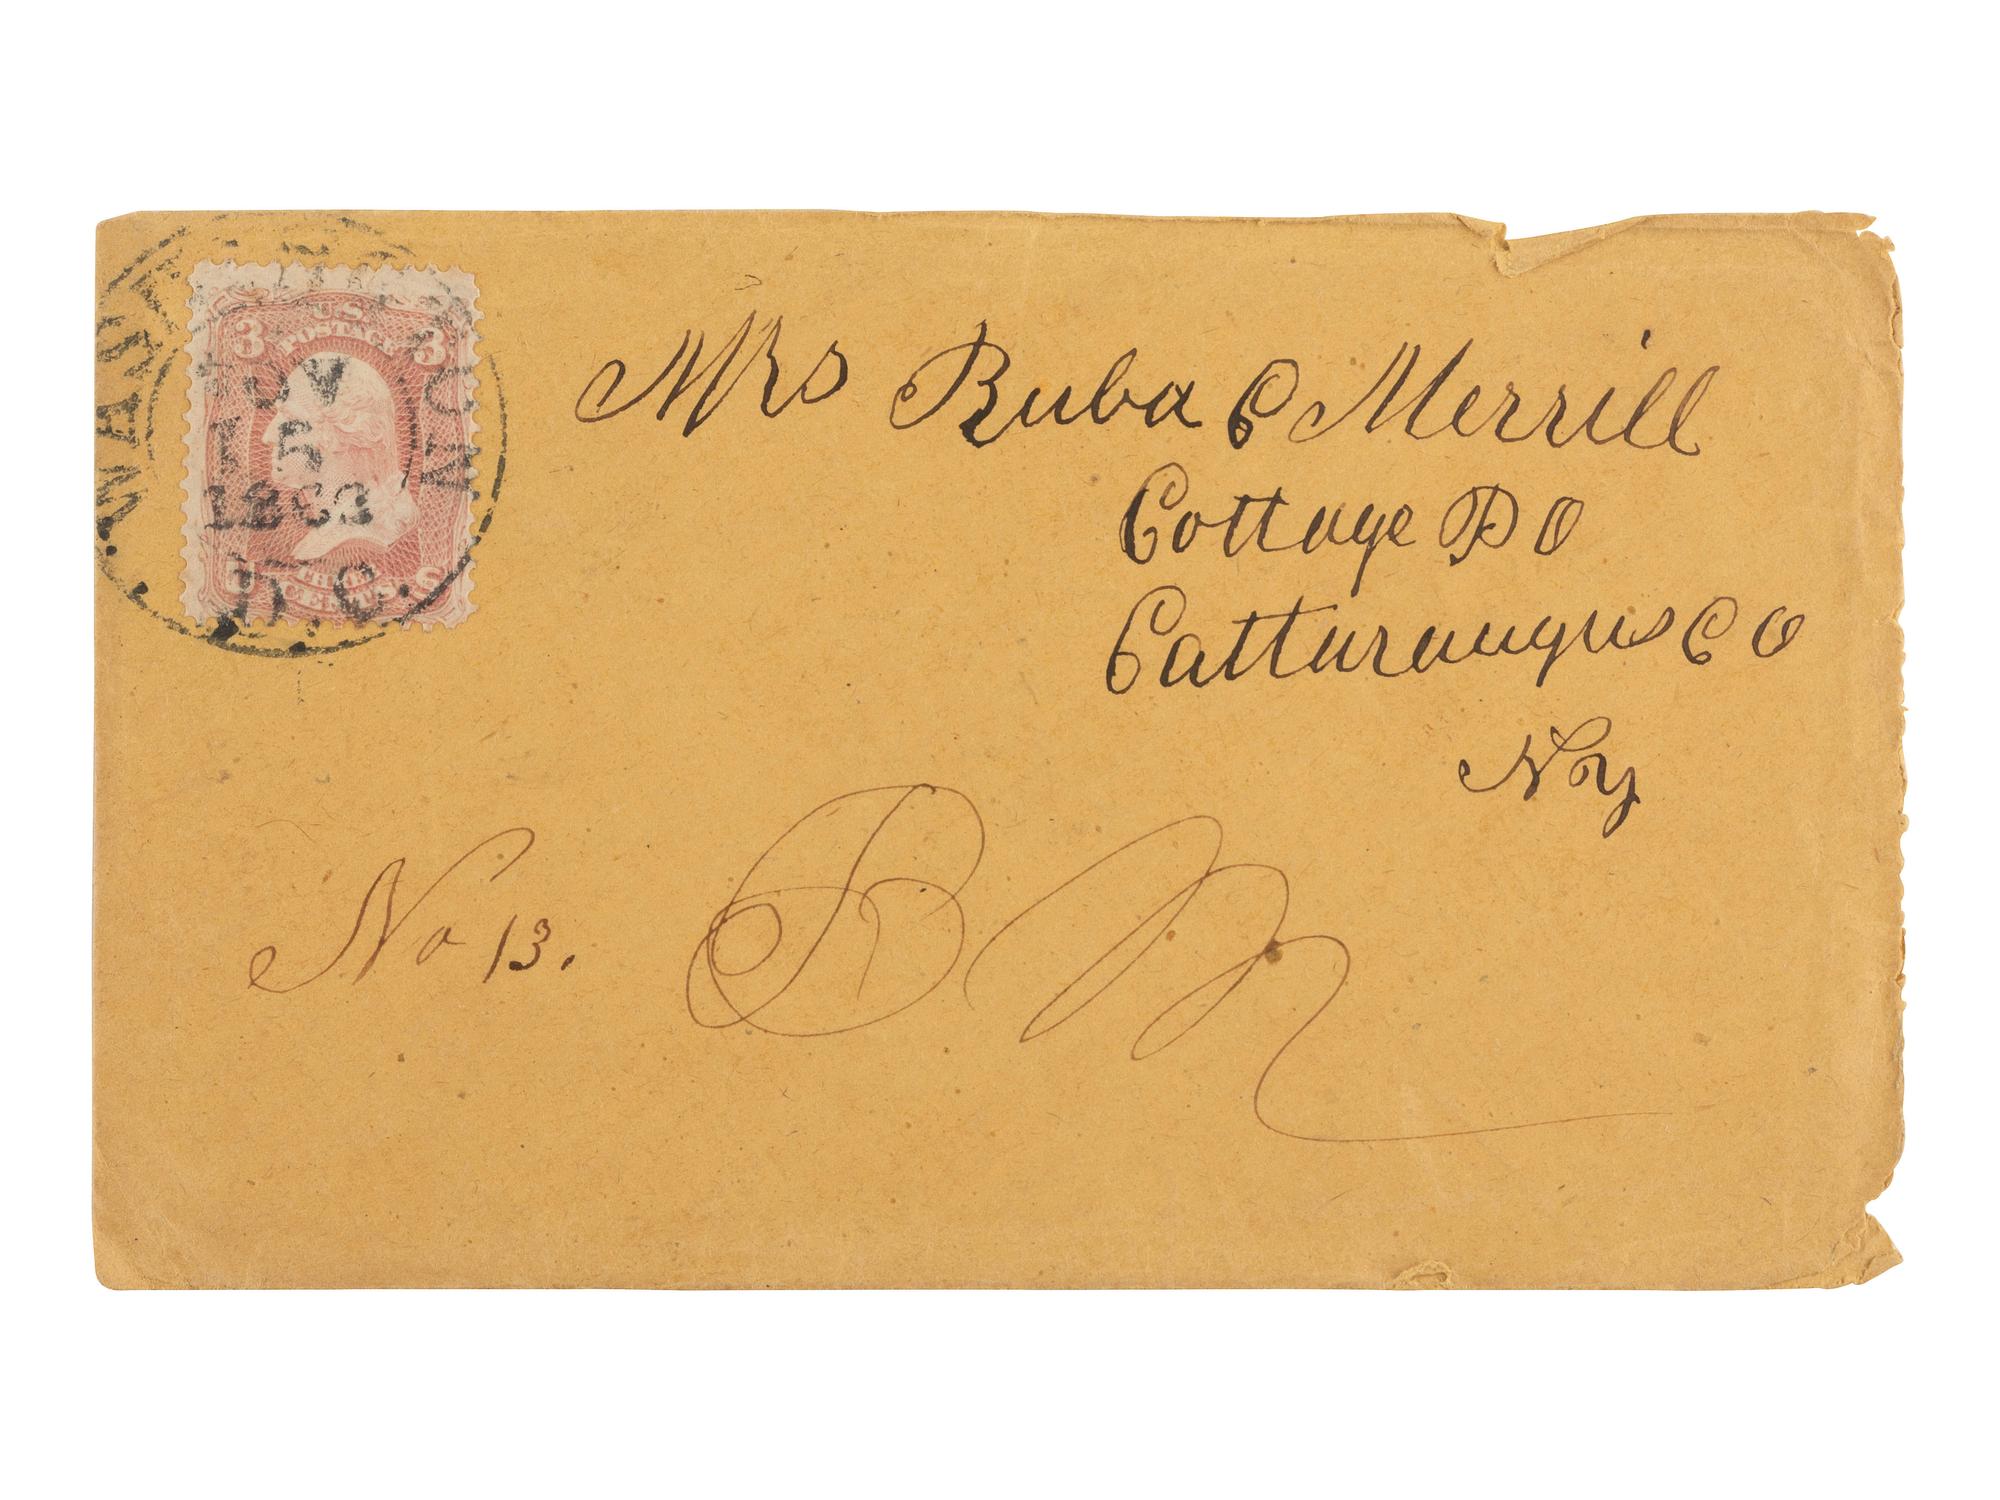 WASHINGTON
NOV
15
1863
D.C.
3 U.S. 3
POSTAGE
THREE
CENTS
Mrs Ruba C Merrill
Cottage PO
Cattaraugus Co
Ny
No 13.
R M